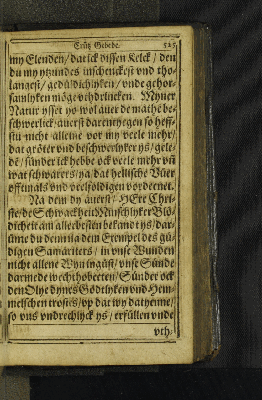 Crütz Gebede. 525
my Elenden/ dat ick dissen Kelck/ den
du my ytzundes inschenckest vnd tho-
langest/ gedüldichlyken/ vnde gehor-
samlyken möge vthdrincken. Myner
Natur ysset yo wol auer de mathe be-
schwerlick/ auerst darentyegen so heff-
stu nicht alleine vor my veele mehr/
dat gröter vnd beschwerlyker ys/ gele-
de/ sünder ick hebbe ock veele mehr vñ
wat schwarers/ ya/ dat hellische Vüer
offtmals vnd veelfoldigen vordenet.
Na dem dy auerst/ HEre Chri-
ste/ de Schwackheit Minschlyker Blö-
dicheit am allerbesten bekandt ys/ dar-
ümme du denn na dem Exempel des gü-
digen Samariters/ in vnse Wunden
nicht allene Wyn ingüst/ vnse Sünde
darmede wechthobetten/ Sünder ock
den Olye dynes Gödtlyken vnd Hem-
melschen trostes/ vp dat wy datyenne/
so vns vndrechlyck ys/ erfüllen vnde
vth-